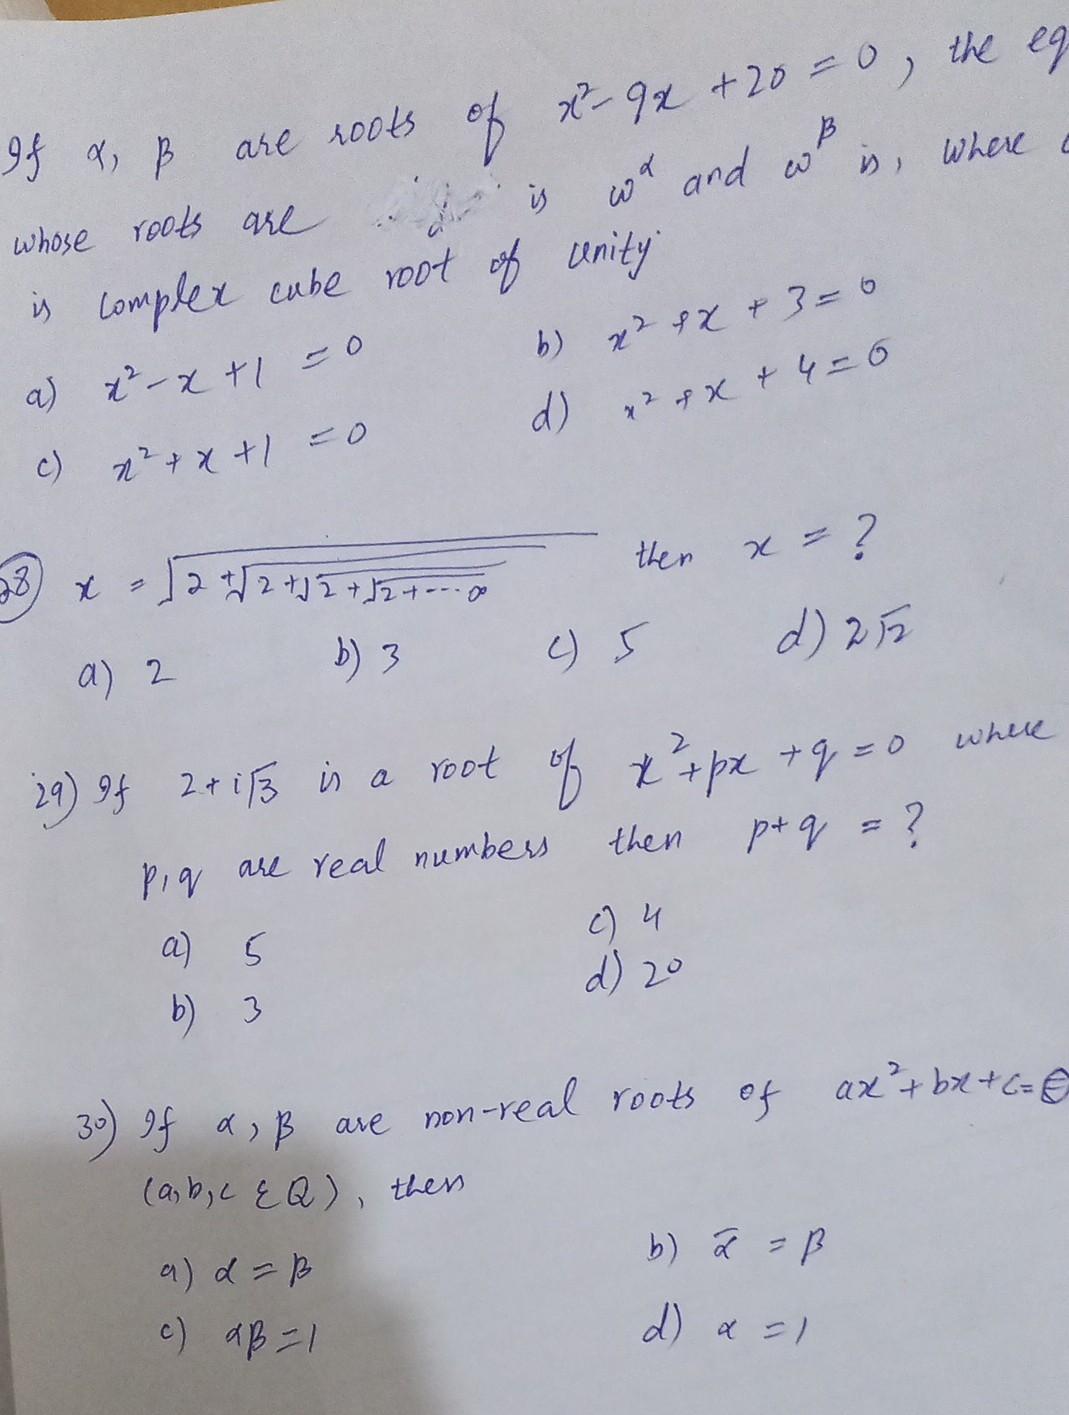 If α, β are roots of x²-9x+20=0, the eq
whose roots are is ω^α and ω^β is, where
is complex cube root of unity
a) x²-x+1=0 b) x²+x+3=0
c) x²+x+1=0 d) x²+x+4=0
28) x = √(2+√(2+√(2+√(2+...∞ then x = ?
a) 2 b) 3 c) 5 d) 2√2
29) If 2+i√3 is a root of x²+px+q=0 where
p,q are real numbers then p+q = ?
a) 5 c) 4
b) 3 d) 20
30) If α, β are non-real roots of ax²+bx+c=0
(a,b,c ∈ Q), then
a) α = β b) ᾱ = β
c) αβ = 1 d) α = 1